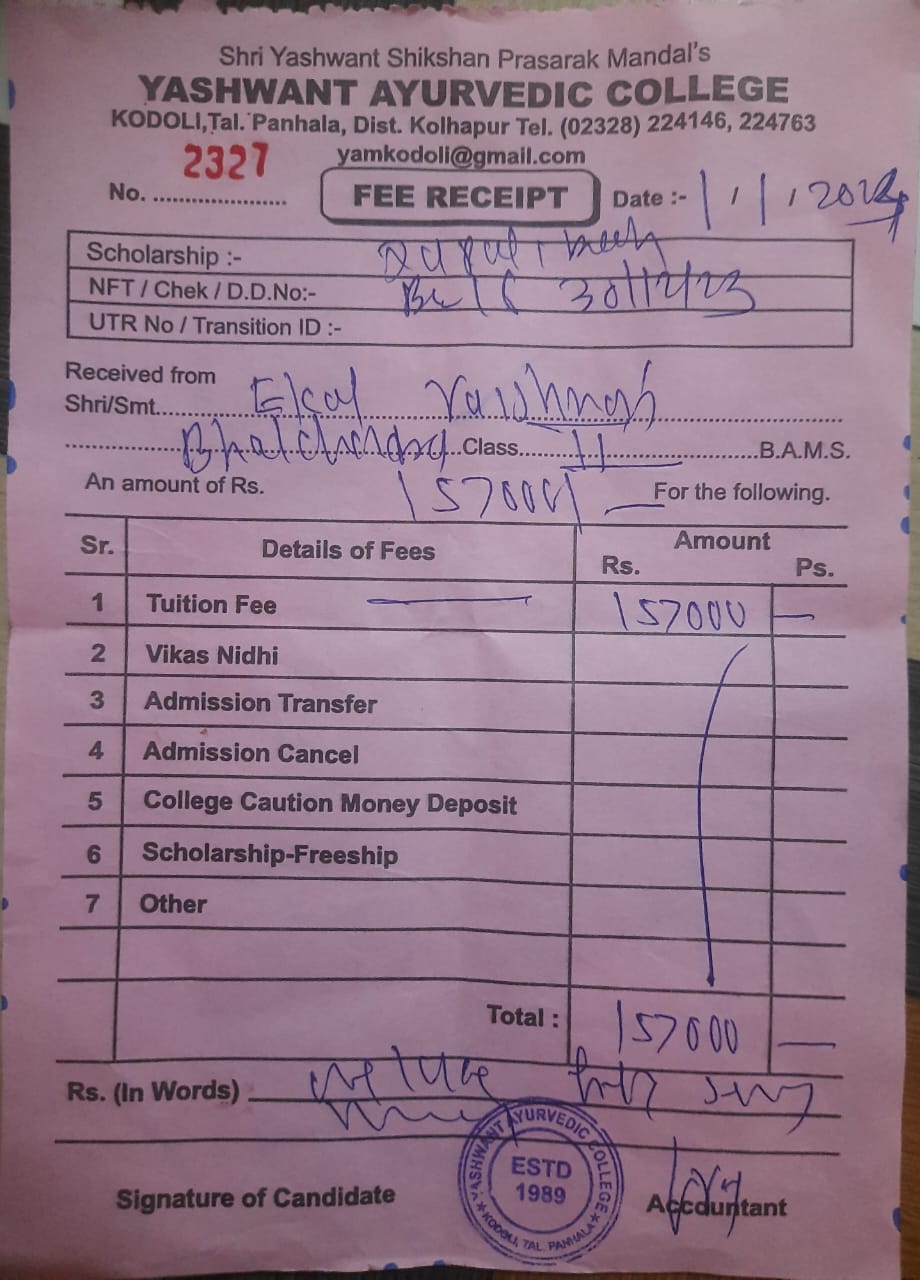 Shri Yashwant Shikshan Prasarak Mandal's
YASHWANT AYURVEDIC COLLEGE
KODOLI,Tal. Panhala, Dist. Kolhapur Tel. (02328) 224146, 224763
yamkodoli@gmail.com
2327
No. ...................... FEE RECEIPT Date :- 1 / 1 / 2024
Scholarship :-
NFT / Chek / D.D.No:- 30/12/23
UTR No / Transition ID :-
Received from
Shri/Smt.
Class II B.A.M.S.
An amount of Rs. 157000/- For the following.
Sr. Details of Fees Amount
Rs. Ps.
1 Tuition Fee 157000 —
2 Vikas Nidhi
3 Admission Transfer
4 Admission Cancel
5 College Caution Money Deposit
6 Scholarship-Freeship
7 Other
Total : 157000 —
Rs. (In Words)
YASHWANT AYURVEDIC COLLEGE
ESTD
1989
KODOLI, TAL. PANHALA
Signature of Candidate Accountant